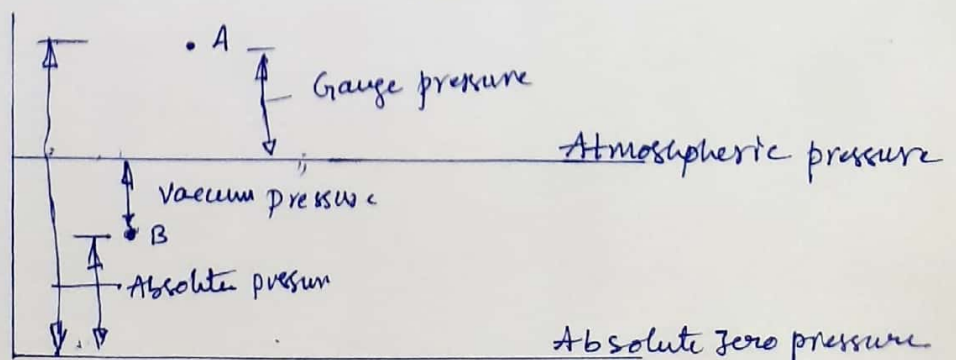 A
Gauge pressure
Atmoshpheric pressure
Vaccum pressure
B
Absolute pressur
Absolute Zero pressure